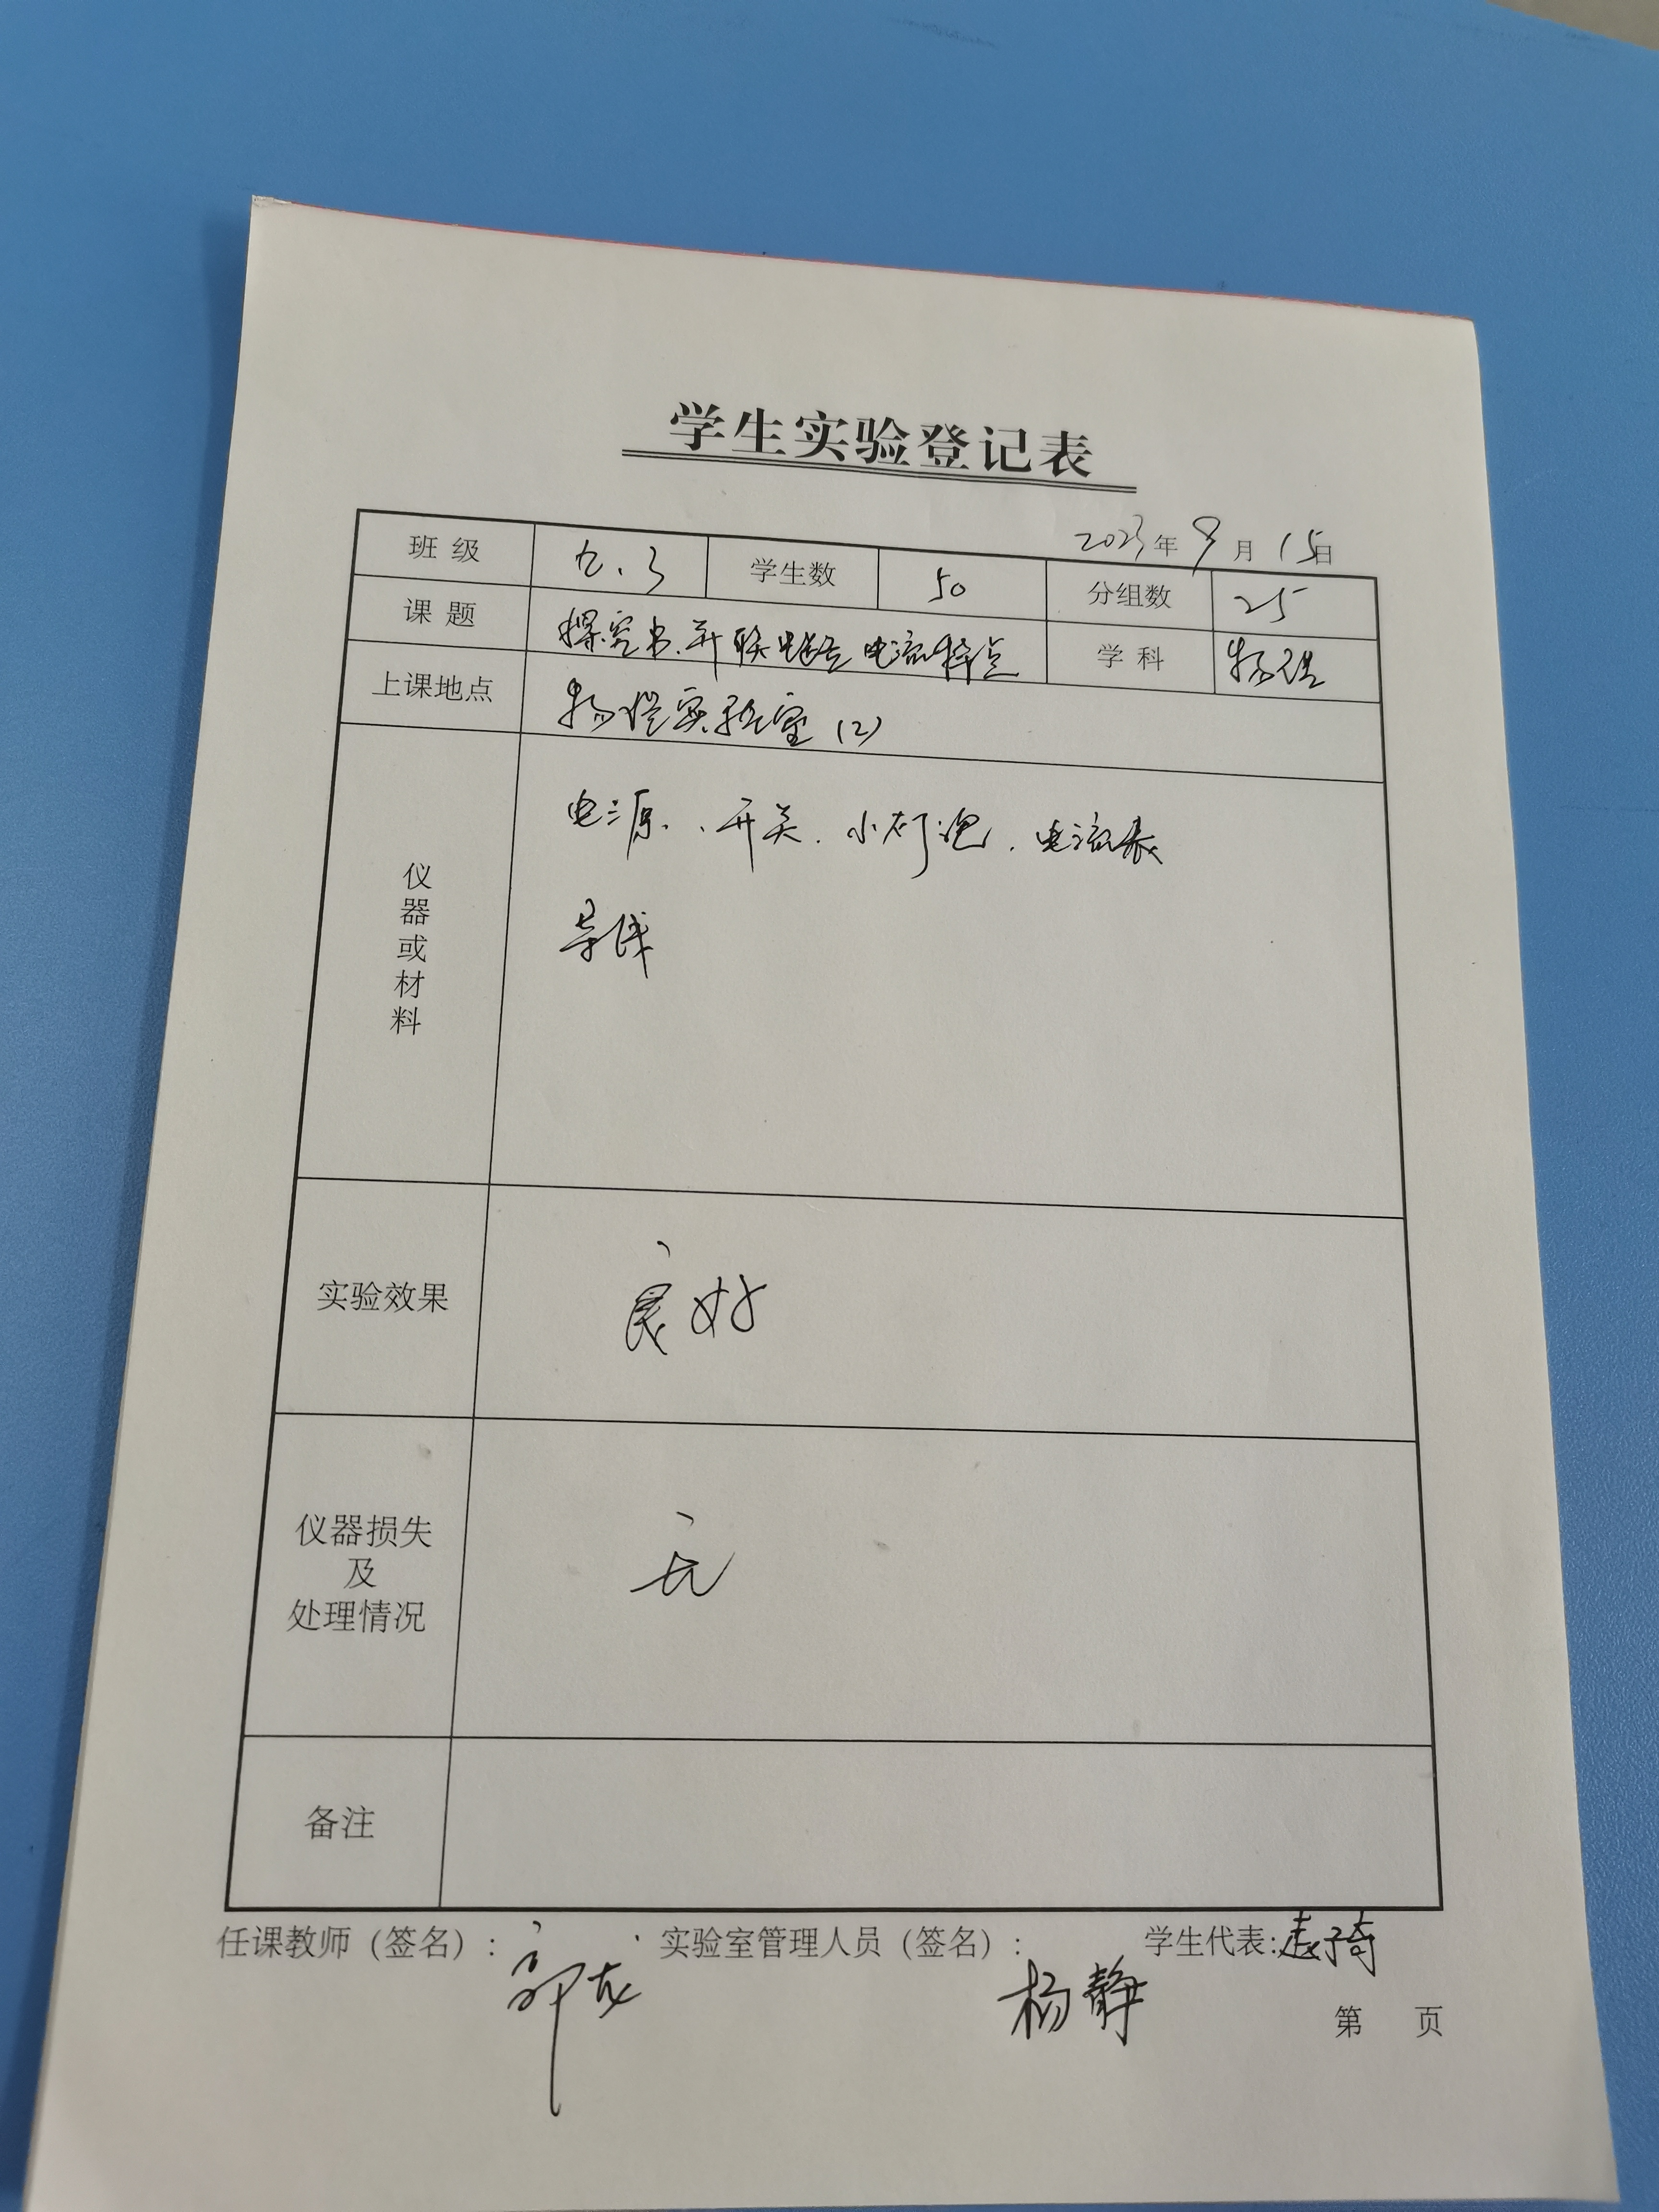 学生实验登记表
2023年9月15日
班级 九.3 学生数 50 分组数 25
课题 探究串、并联电路电流特点 学科 物理
上课地点 物理实验室(2)
仪器或材料 电源、开关、小灯泡、电流表
导线
实验效果 良好
仪器损失
及
处理情况 无
备注
任课教师(签名): 实验室管理人员(签名): 杨静 学生代表:
第 页